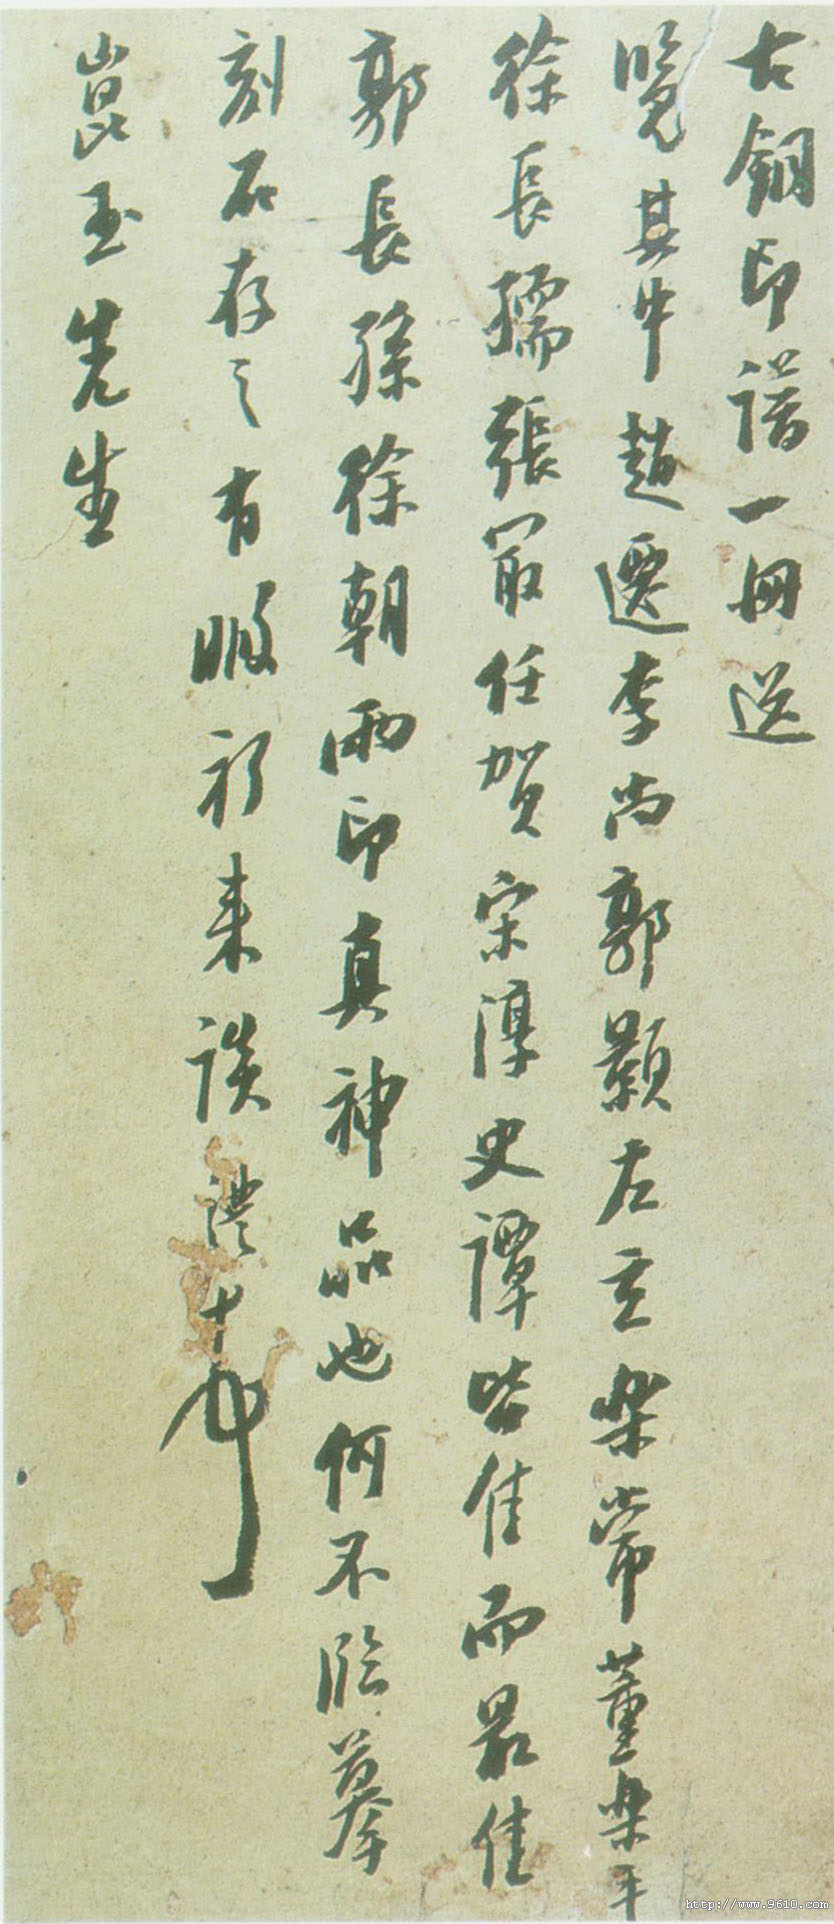 古銅印譜一册送
覽其中趙遷李尚郭顥左立樂常董樂平
徐長孺張冣任賀宋淳史譚皆佳而最佳
郭長孫徐朝兩印真神品也何不臨摹
刻石存之有暇祈来談
崑玉先生
http://www.9610.com